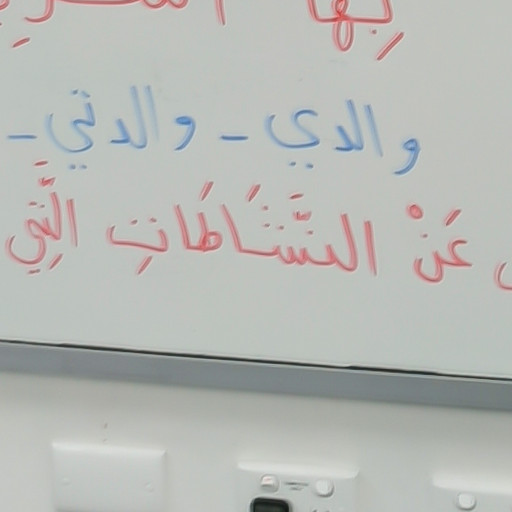 والدي - والدتي -
عَنْ النَّشَاطَاتِ الَّتِي